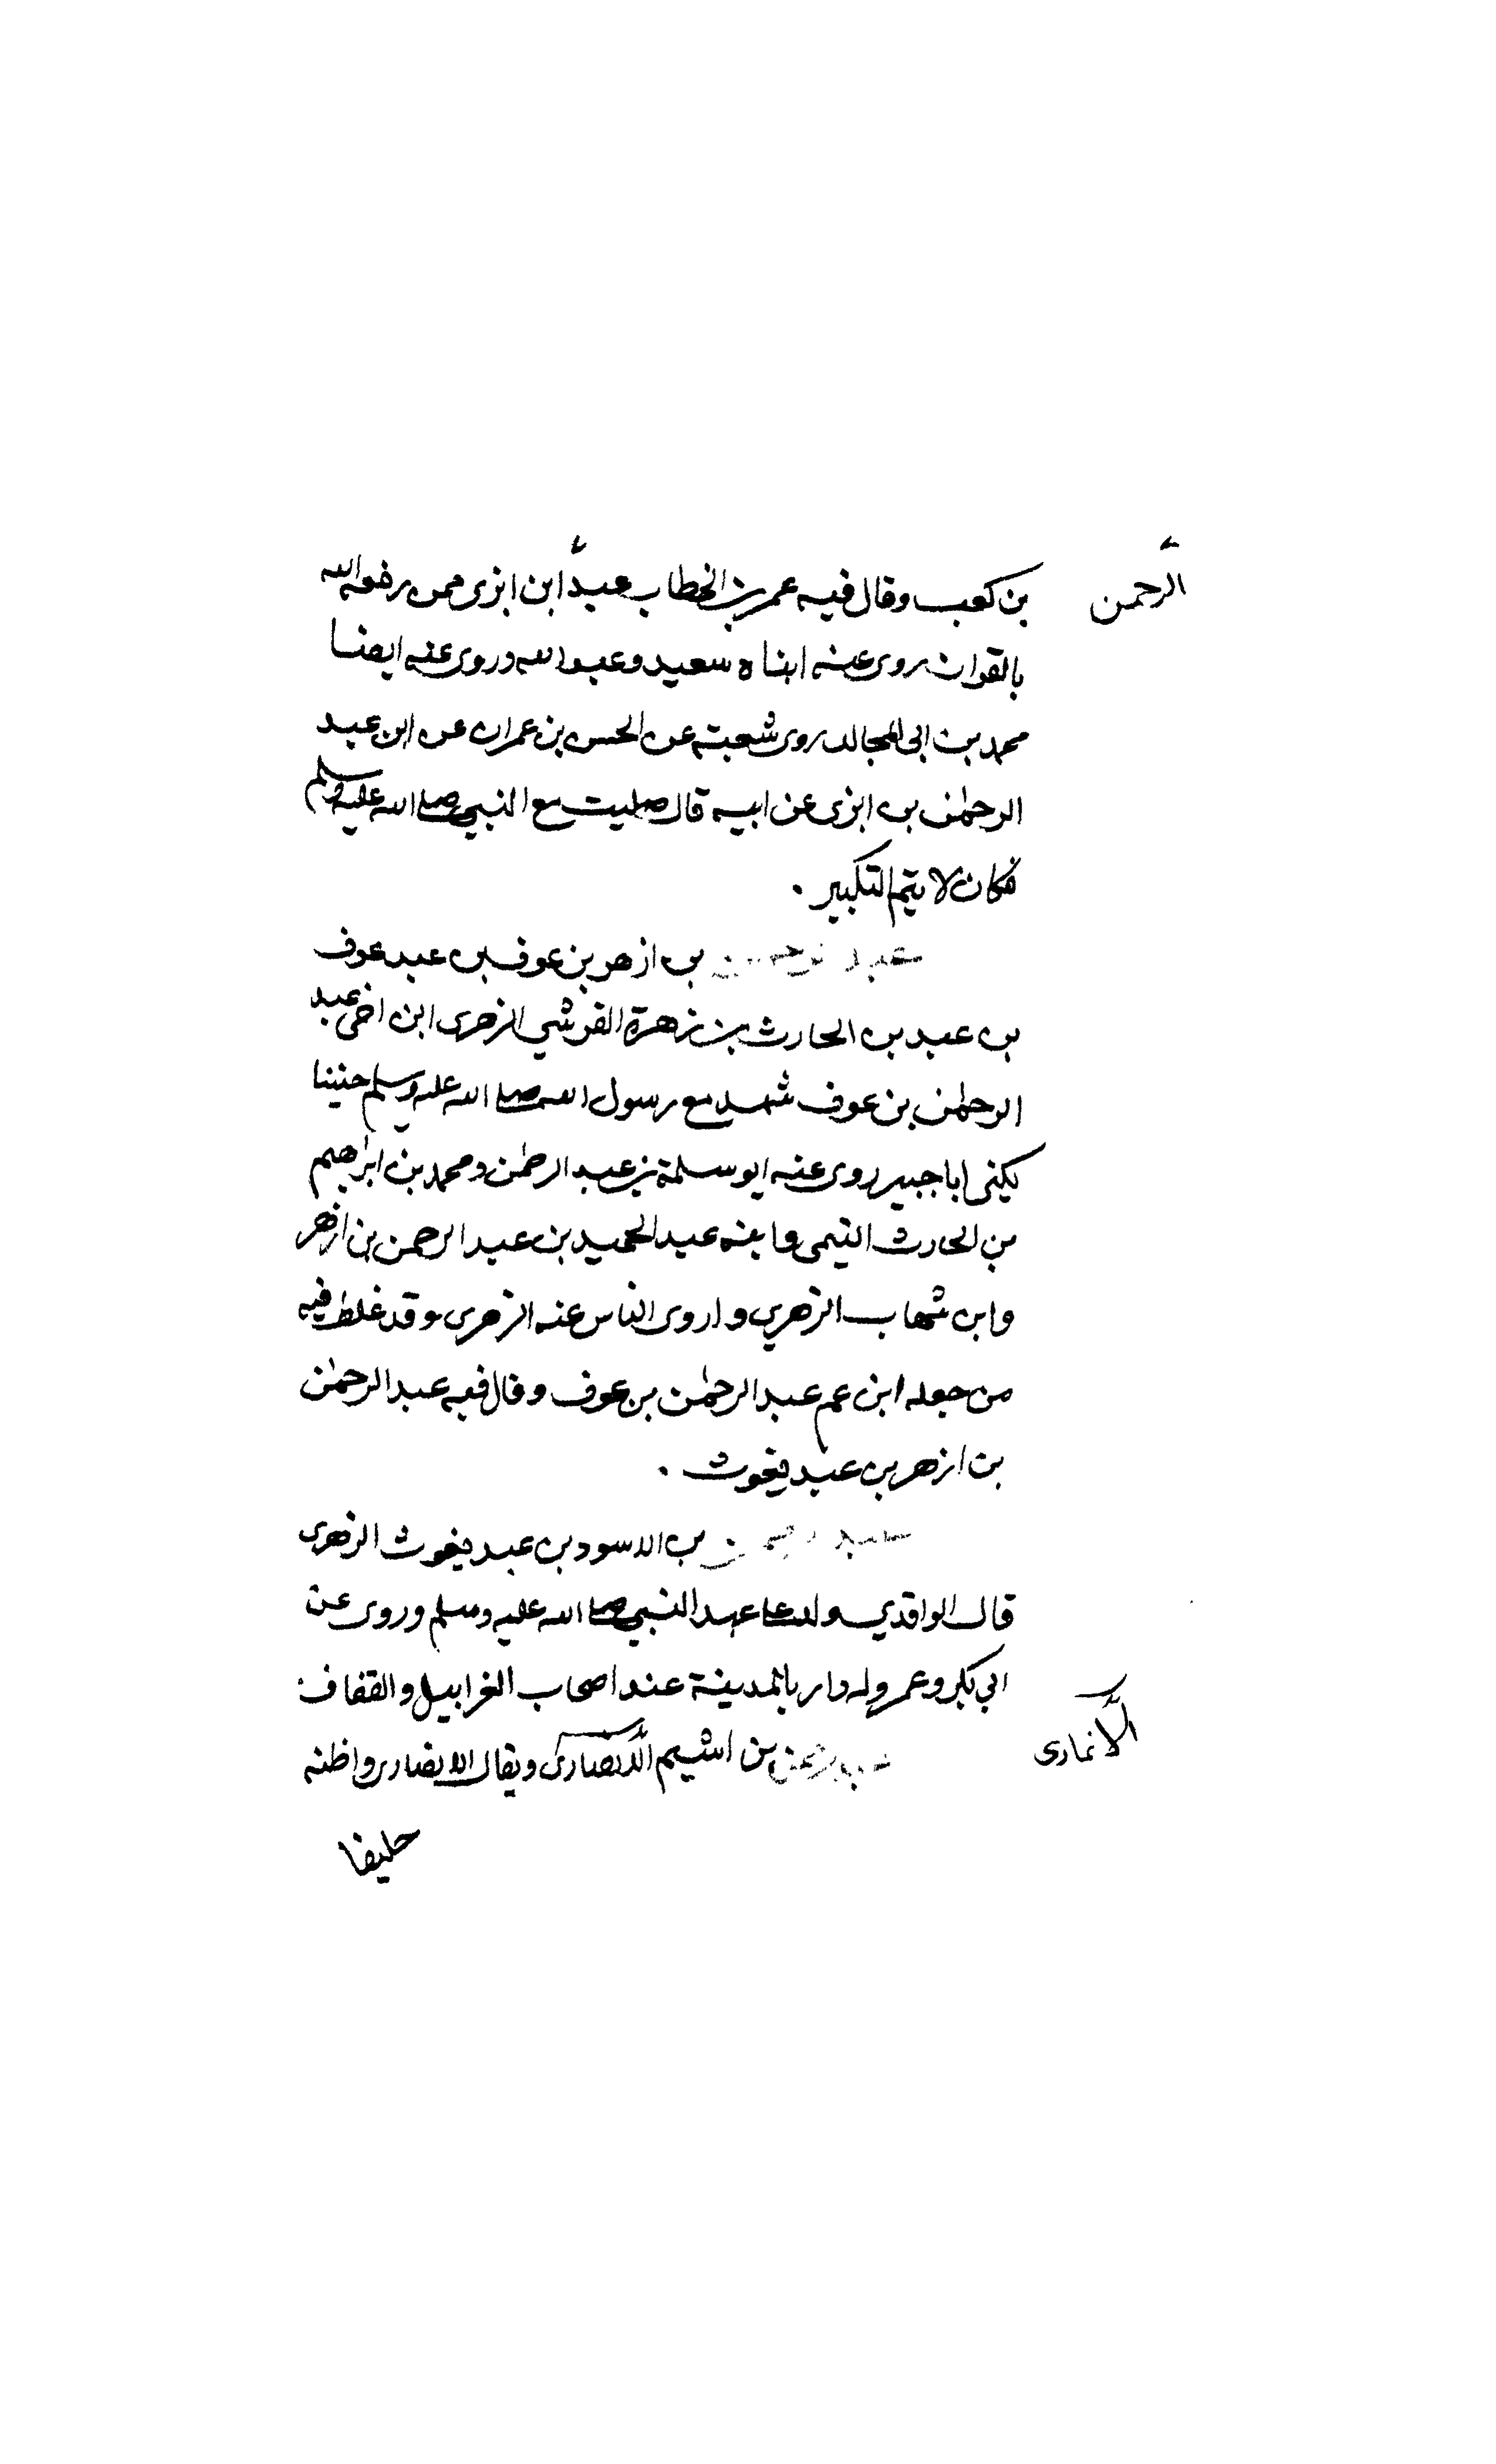 بن كعب وقال فيه عمر بن الخطاب عبد ابن ابزى ممن رفعه الله
الرحمن
بالقران روى عنه ابناه سعيد وعبد الله وروى عنه ايضا
محمد بن ابى المجالد روى شعبة عن الحسن بن عمران عن ابن عبد
الرحمٰن بن ابزى عن ابيه قال صليت مع النبي صلى الله عليه وسلم
فكان لا يتم التكبير .
عبد الرحمن بن ازهر بن عوف بن عبد عوف
بن عبد بن الحارث بن زهرة القرشي الزهرى ابن اخى عبد
الرحمٰن بن عوف شهد مع رسول الله صلى الله عليه وسلم حنينا
يكنى ابا جبير روى عنه ابو سلمة بن عبد الرحمٰن ومحمد بن ابراهيم
بن الحارث التيمى وابنه عبد الحميد بن عبد الرحمن بن ازهر
وابن شهاب الزهري واروى الناس عنه الزهرى وقد غلط فيه
من جعله ابن عم عبد الرحمٰن بن عوف وقال فيه عبد الرحمٰن
بن ازهر بن عبد يغوث .
عبد الرحمن بن الاسود بن عبد يغوث الزهرى
قال الواقدي ولد على عهد النبي صلى الله عليه وسلم وروى عن
ابي بكر وعمر وله دار بالمدينة عند اصحاب الغرابيل والقفاف
عبد الرحمن بن اشيم الانصارى ويقال الانصارى واظنه
الانمارى
حليفا